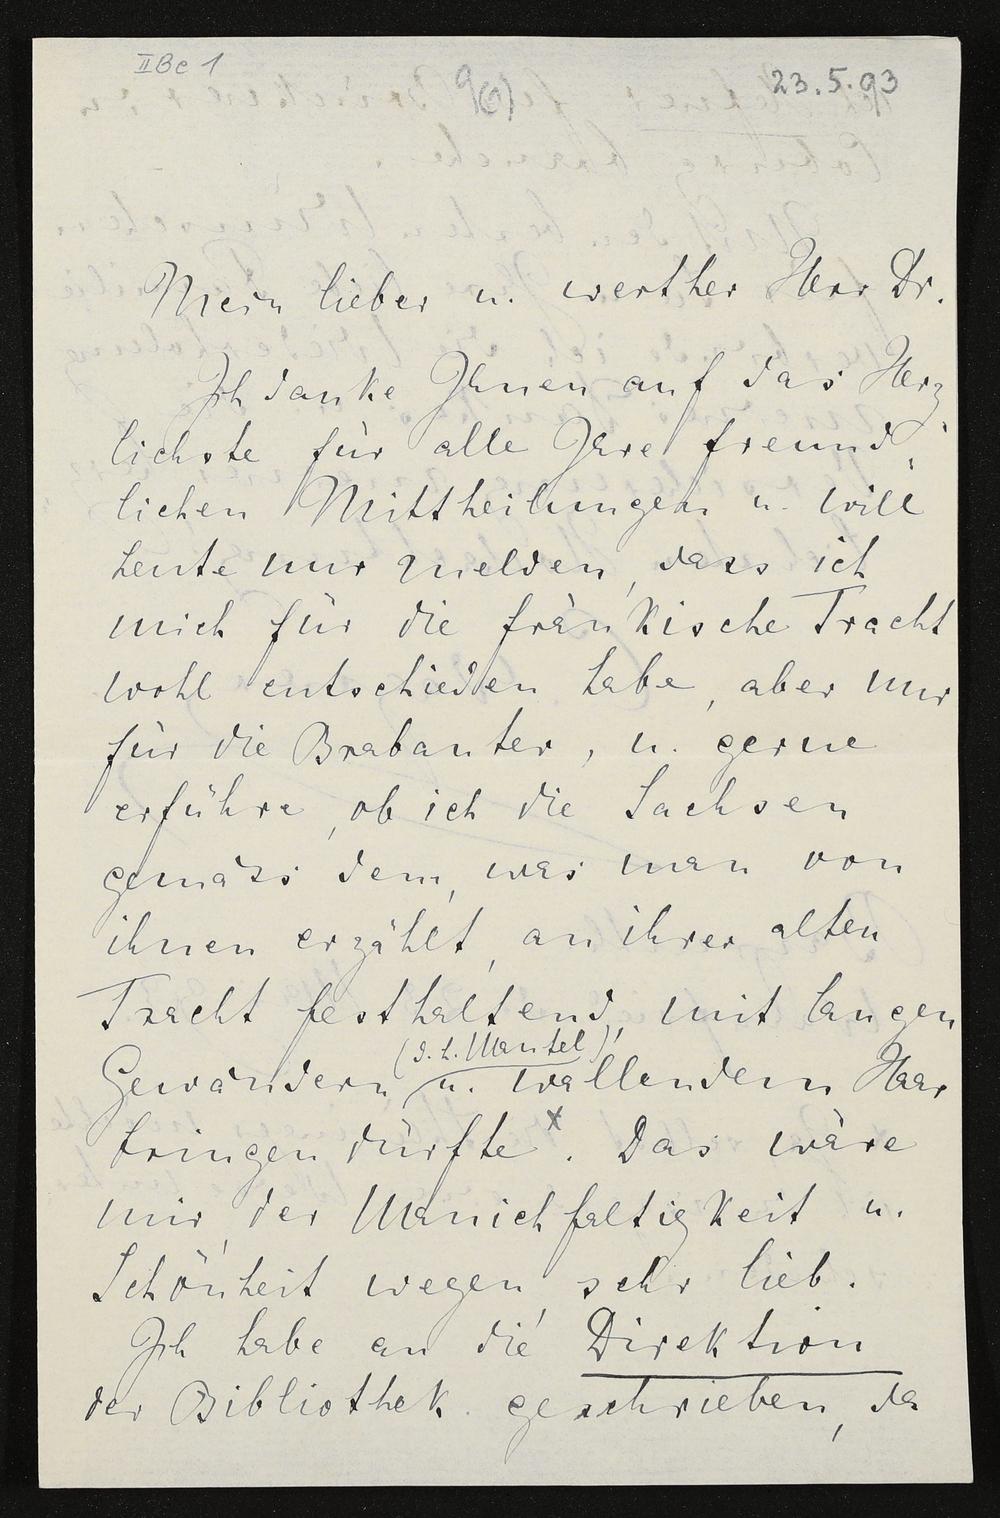 II Bc 1
9(1)
23.5.93
Mein lieber u. werther Herr Dr.
Ich danke Ihnen auf das Herz
lichste für alle Ihre freund,
lichen Mittheilungen u. will
heute nur melden, dass ich
mich für die fränkische Tracht
wohl entschieden habe, aber nur
für die Brabanter, u. gerne
erführe, ob ich die Sachsen
gemäss dem, was man von
ihnen erzählt, an ihrer alten
Tracht festhaltend, mit langen
(d. h. Mantel)
Gewändern u. wallendem Haar
bringen dürfte x. Das wäre
mir, der Manichfaltigkeit u.
Schönheit wegen, sehr lieb.
Ich habe an die Direktion
der Bibliothek geschrieben, da